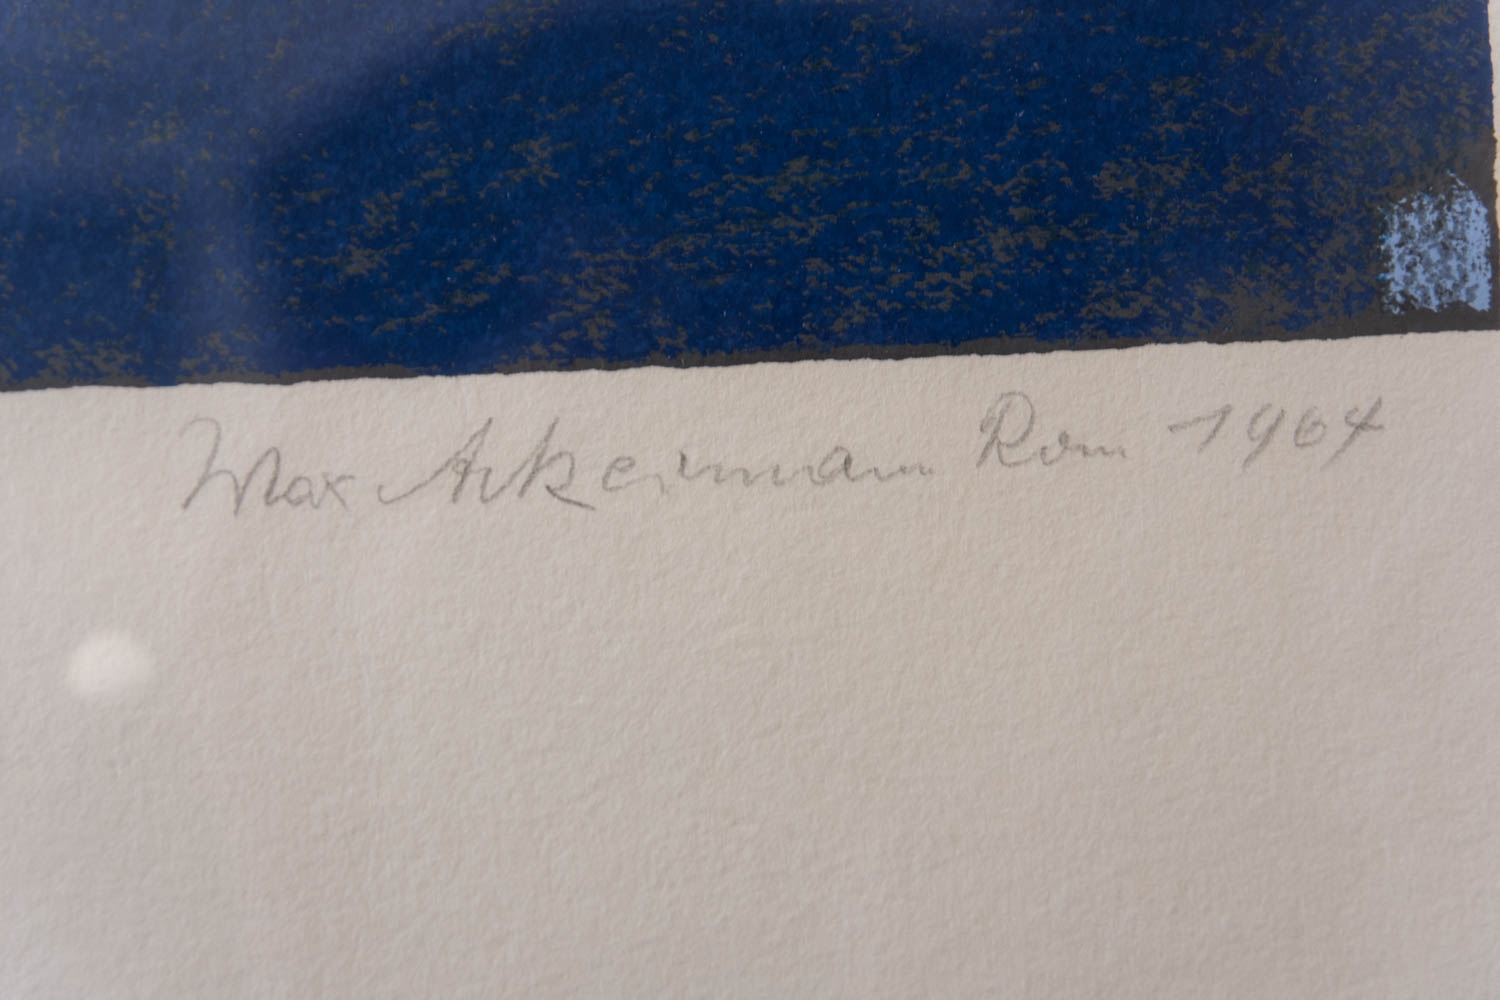 Max Ackermann Rom 1964